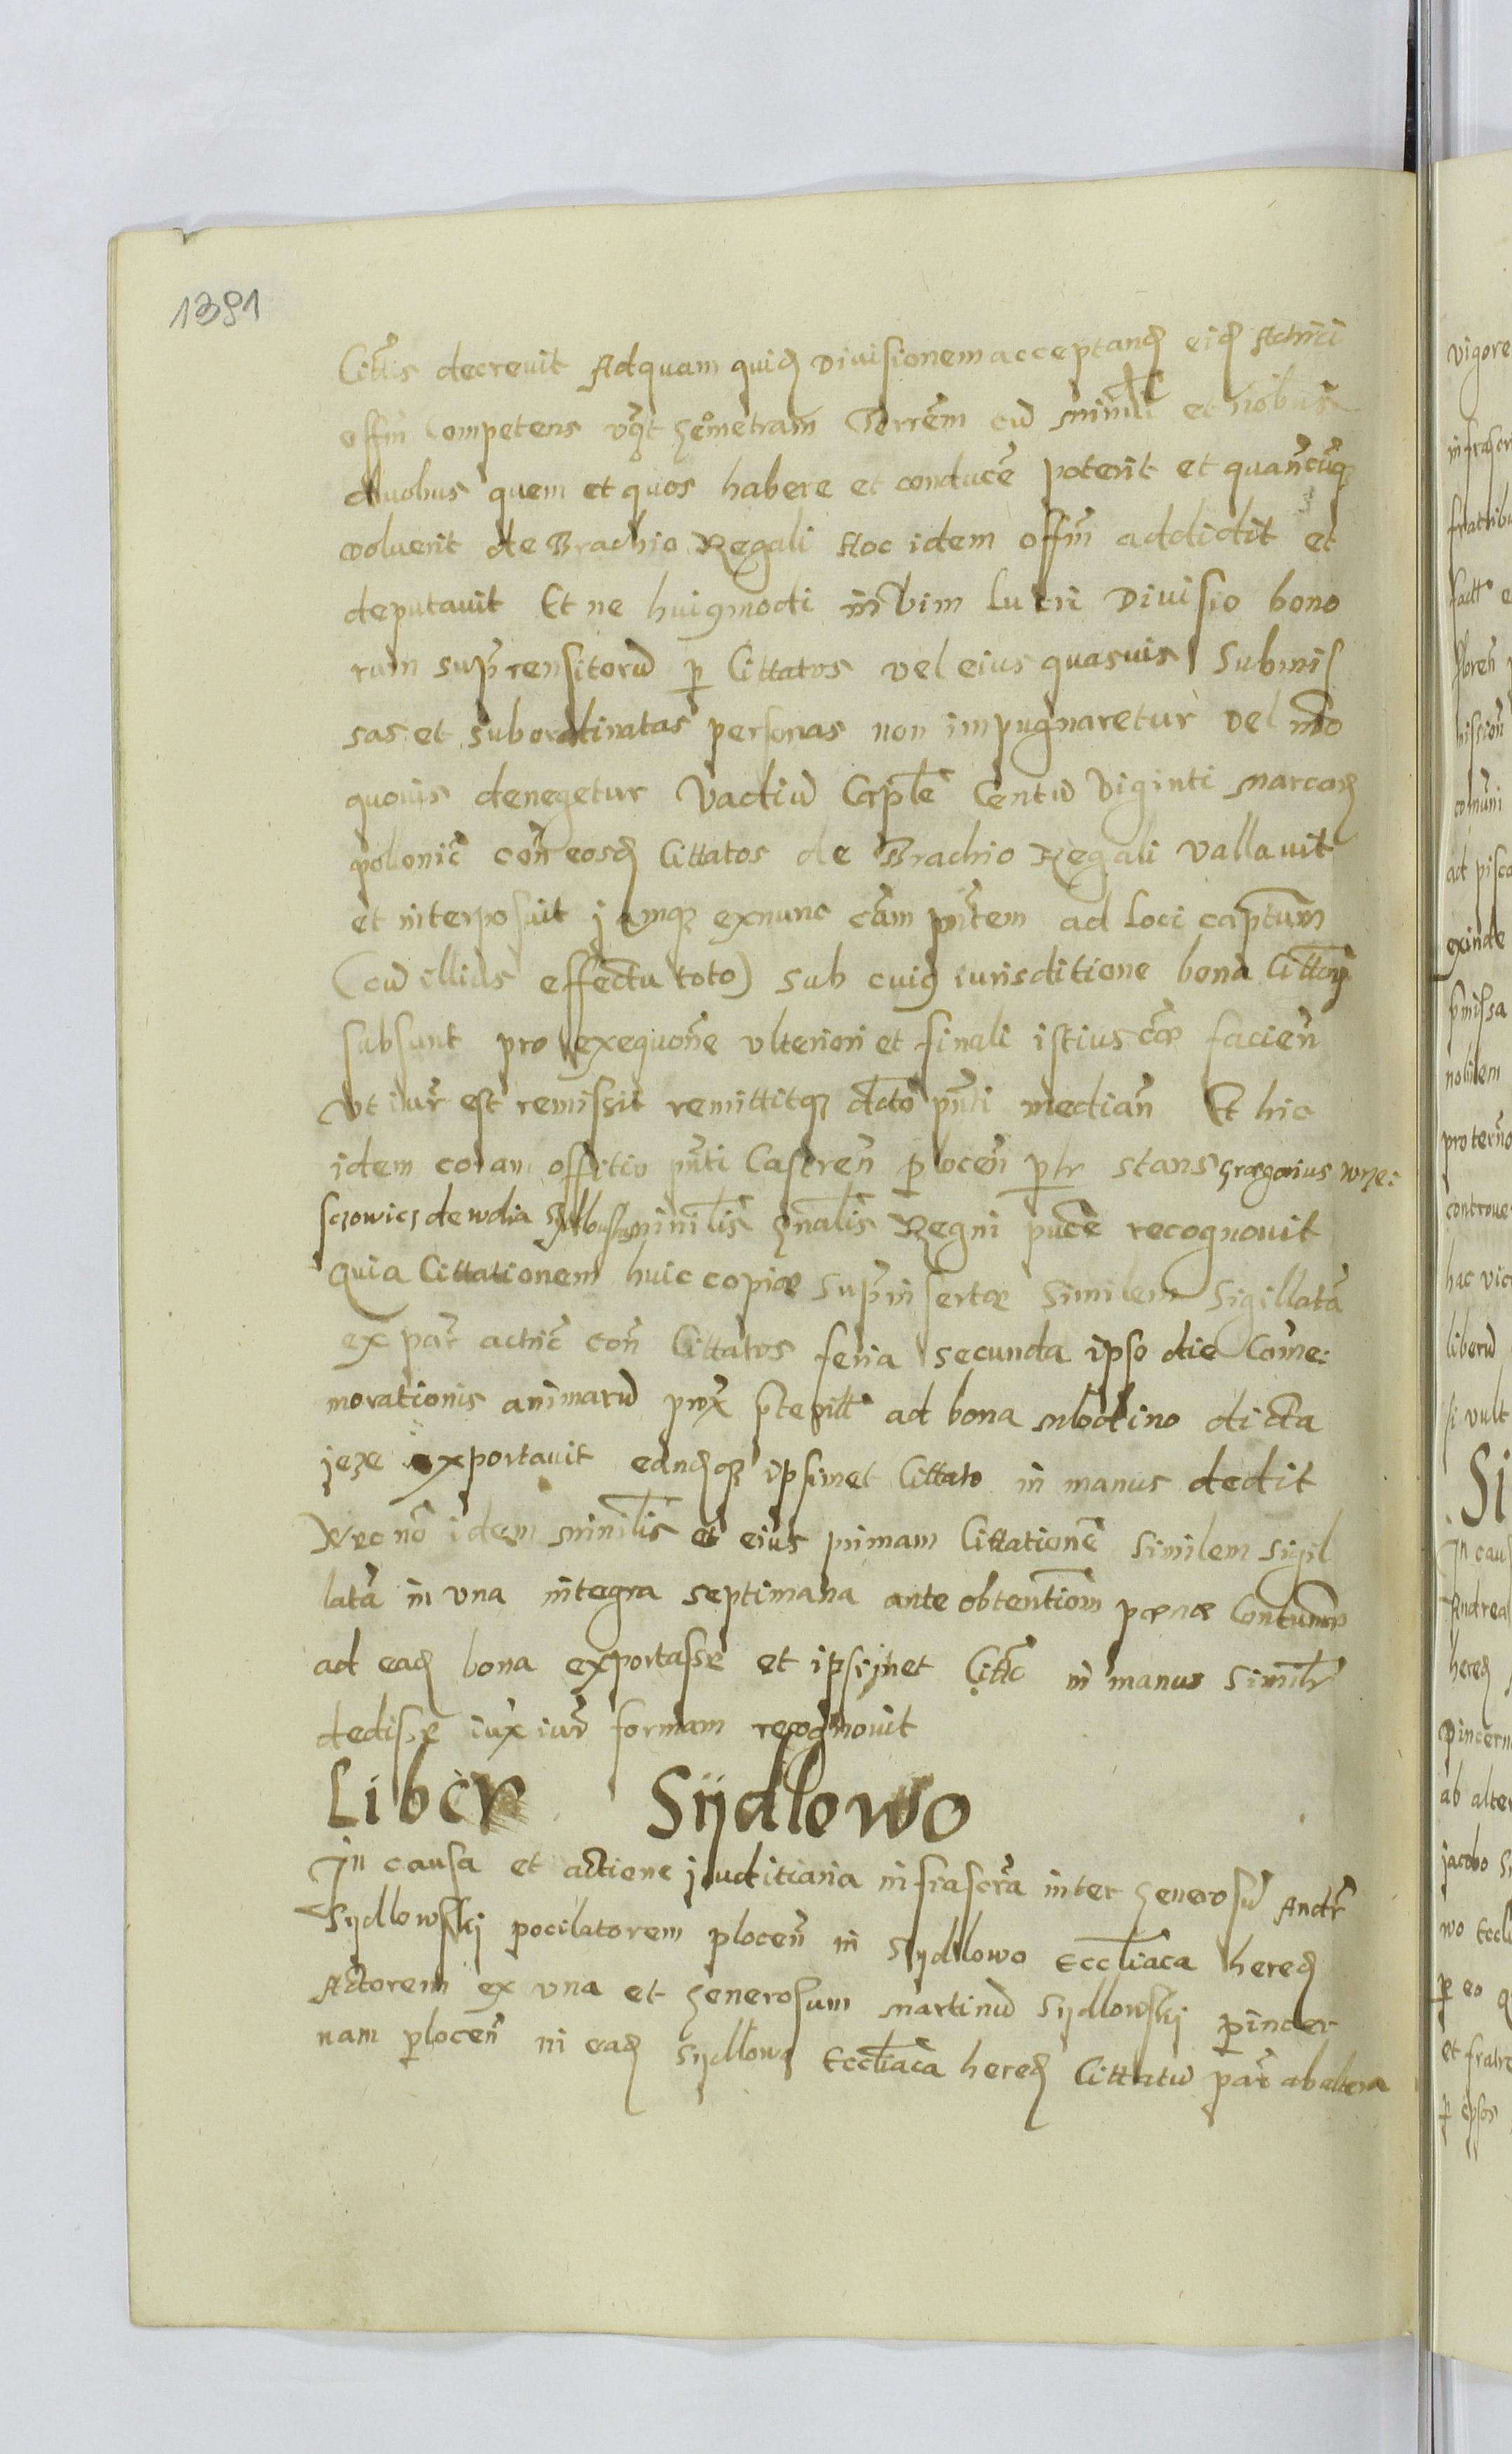 1391
Cittīs decrevit Ad quam quid Divisionem acceptand eid Actrici
offm Competens vqt Geometram Terrem cū minīli et nobus
duobus quem et quos habere et conducē poterit et quancunq
voluerit de Brachio Regali hoc idem offm addidit et
deputavit Et ne huiqmodi in vim lucri Divisio bono
rum supra censitorū p Cittatos vel eius quasvis submis
sas et subordinatas personas non impugnaretur vel mō
quovis denegetur Vadiū Cāple Centū Viginti marcar
polonic con eosd Cittatos de Brachio Regali vallavit
et interposuit jamq exnunc cam pntem ad loci captum
(cū illius effectu toto) sub cuiq iurisditione bona Cittor
subsunt pro exequone ulteriori et finali istius cae facien
Ut iur est remissit remittitq dcto pnti median Et hic
idem coram offitio pnti Castren plocen plr stans Gregorius wrze:
sczowicz de wdia minilis gnalis Regni pnce recognovit
Quia Cittationem huic copiae supra insertae similem Sigillatā
ex par actric con Cittatos feria secunda ipso die Come:
morationis animarū prox pterit ad bona mlodino dicta
jeze exportavit eandq ipsimet Cittato in manus dedit
Nec nō idem minilis et eius primam Cittationē similem sigil
latā in una integra septimana ante obtentiom paenae Contum
ad ead bona exportasse et ipsimet Citto in manus similr
dedisse iux iur formam recognovit
Liber Sijdlowo
In causa et actione juditiaria infrascra inter Generosū Andr
Sijdlowskj pocilatorem plocen in Sijdlowo Eccliaca hered
Actorem ex una et Generosum martinū Sijdlowskj pincer
nam plocen in ead Sijdlowo Eccliaca hered Cittatū par ab altera
vigore
exinde
nobilem
liberū
si vult
Si
In caus
Andrea
hered
pincern
ab alter
jacobo
wo Eccl
et fratre